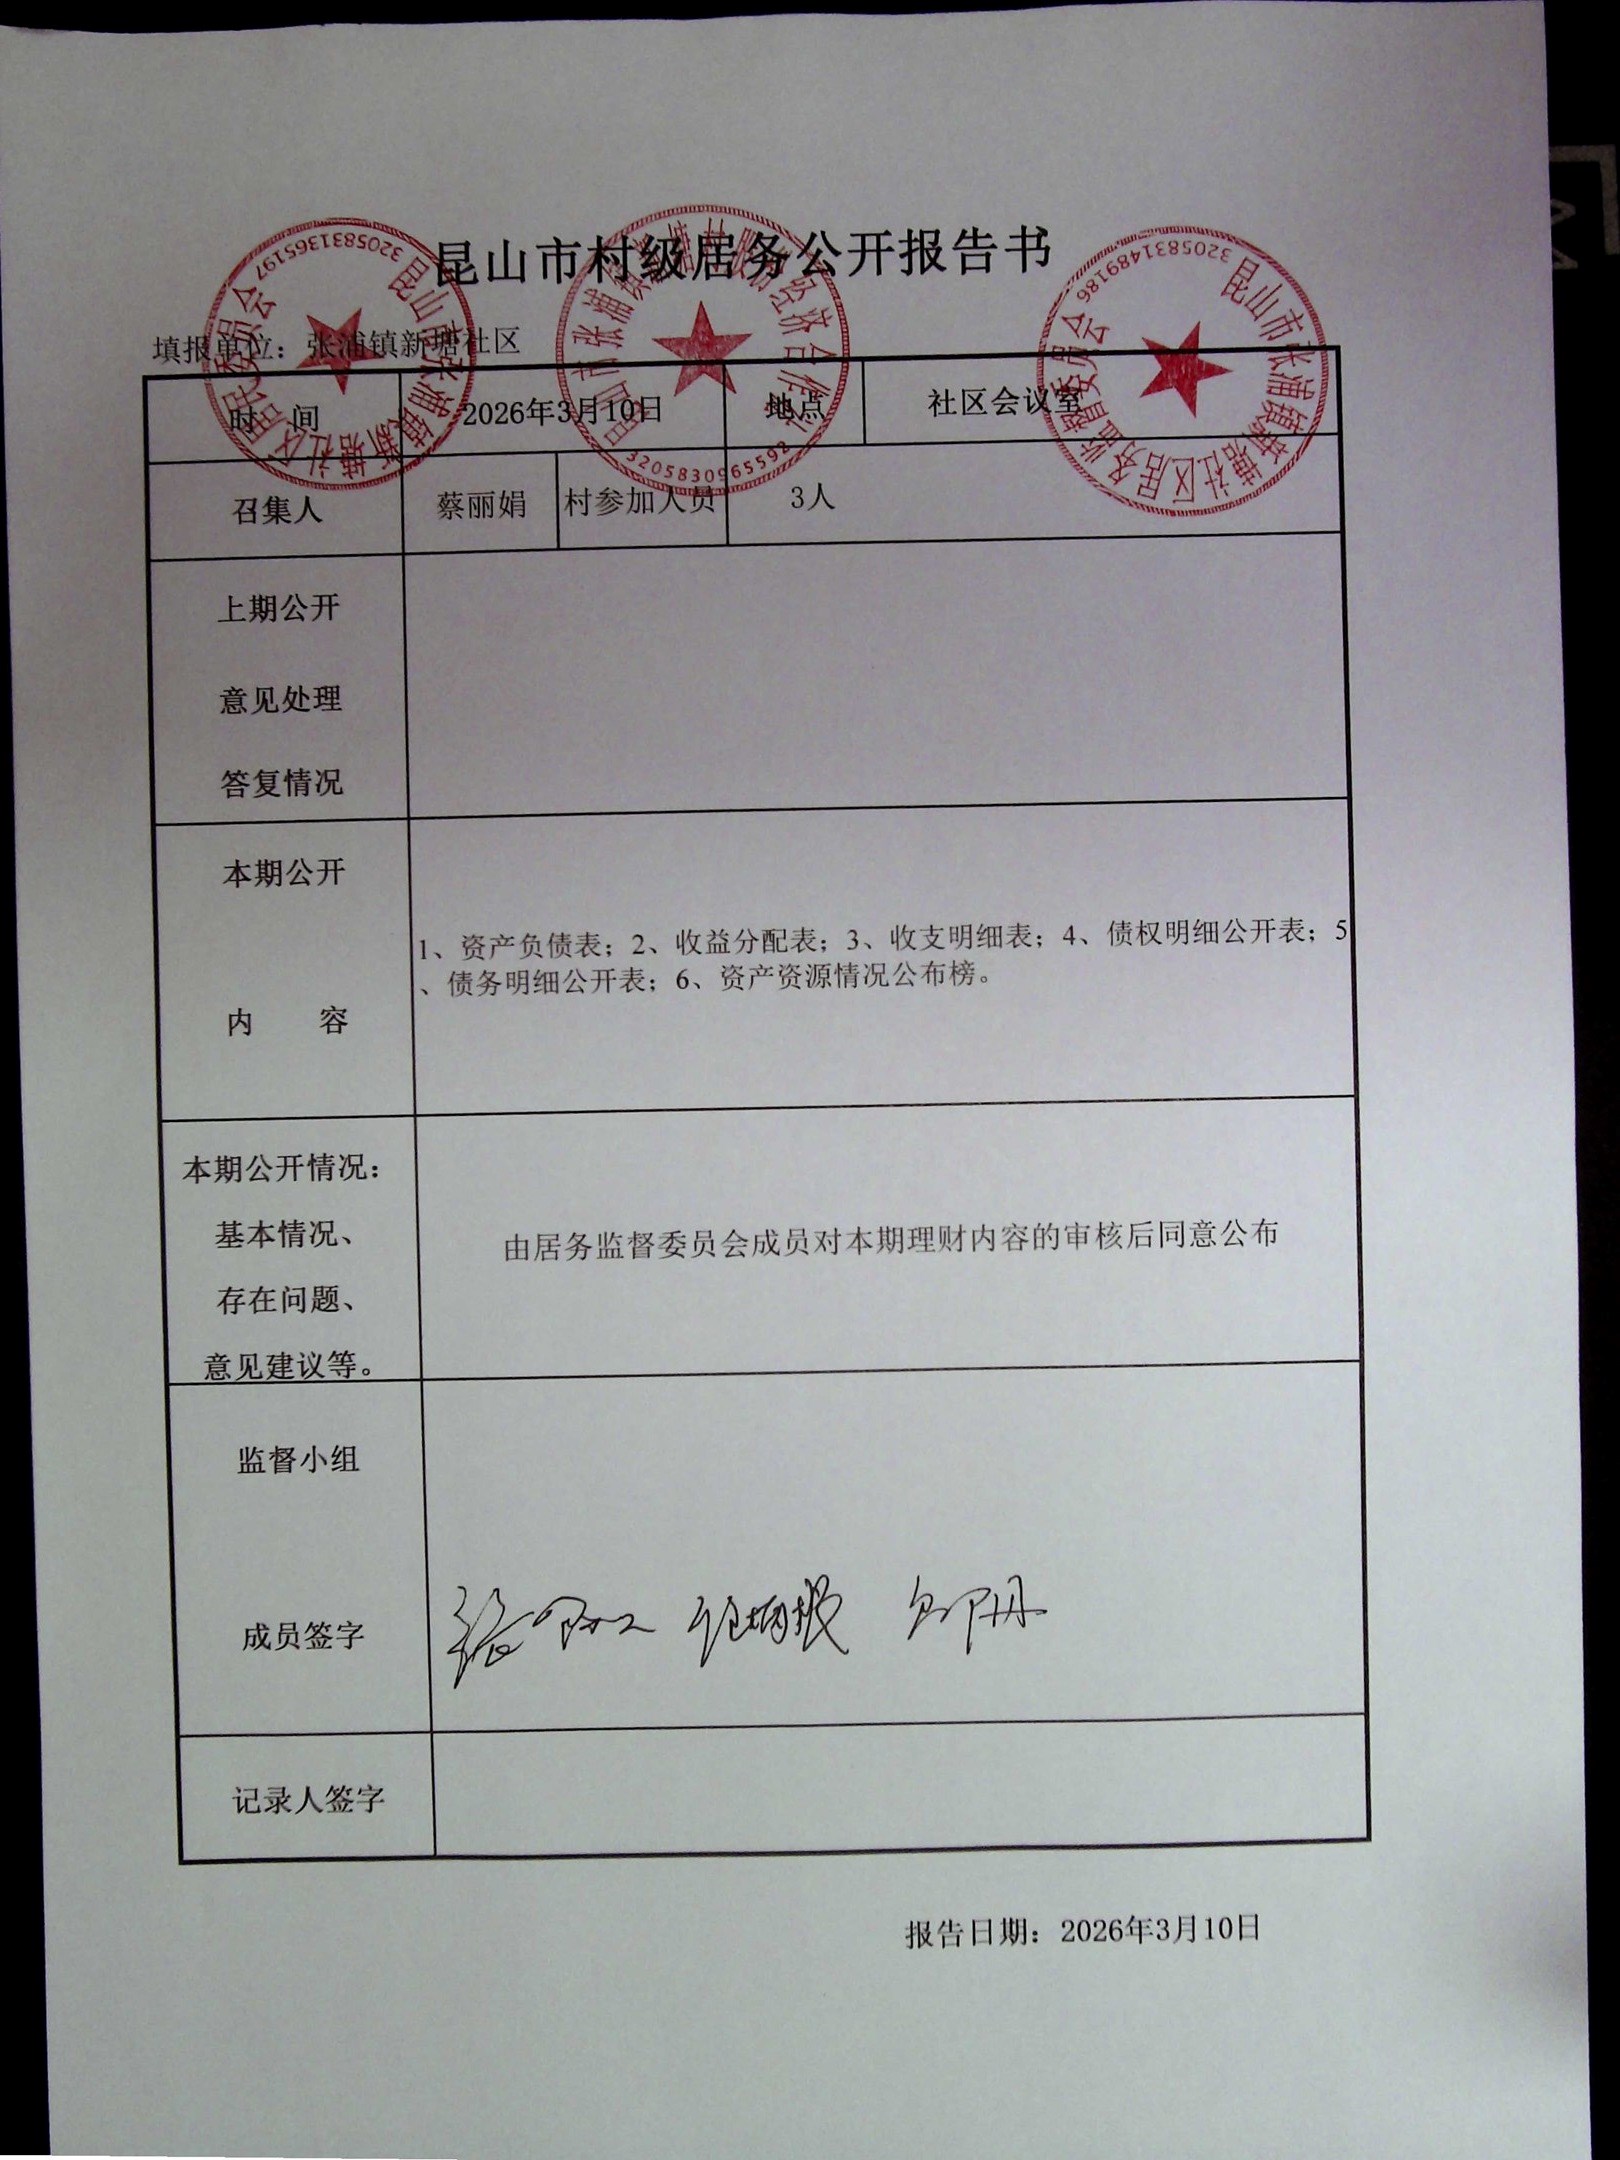 昆山市村级居务公开报告书
填报单位：张浦镇新塘社区
时 间 2026年3月10日 地点 社区会议室
召集人 蔡丽娟 村参加人员 3人
上期公开
意见处理
答复情况
本期公开
内 容
1、资产负债表；2、收益分配表；3、收支明细表；4、债权明细公开表；5
、债务明细公开表；6、资产资源情况公布榜。
本期公开情况：
基本情况、
存在问题、
意见建议等。
由居务监督委员会成员对本期理财内容的审核后同意公布
监督小组
成员签字
记录人签字
报告日期：2026年3月10日
昆山市张浦镇新塘社区居民委员会
3205831365197
3205830965592
昆山市张浦镇新塘社区居务监督委员会
3205831489186